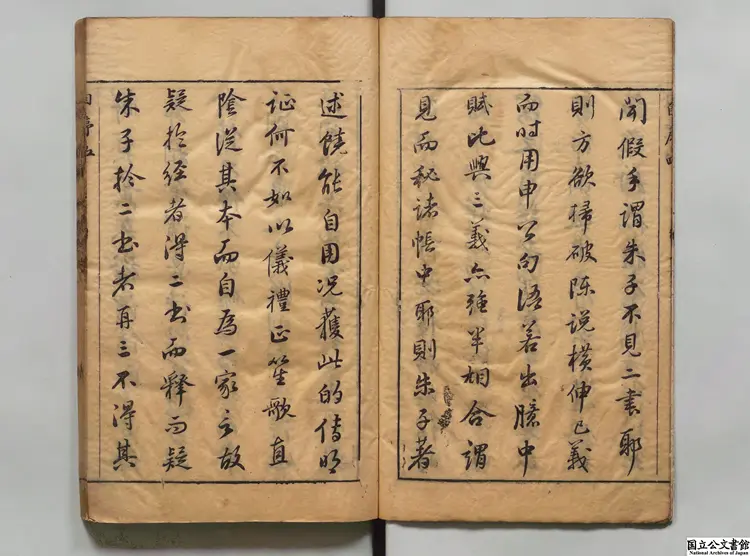 聞假手謂朱子不見二書耶
則方欲掃破陈说橫伸己義
而时用申公句语若出臆中
赋比興三義亦强半相合謂
見而秘诸帳中耶則朱子著
述饒能自用况獲此的傳明
证何不如以儀禮正笙歌直
陰从其本而自為一家言故
疑於经者得二书而釋而疑
朱子於二书者再三不得其
国立公文書館
National Archives of Japan